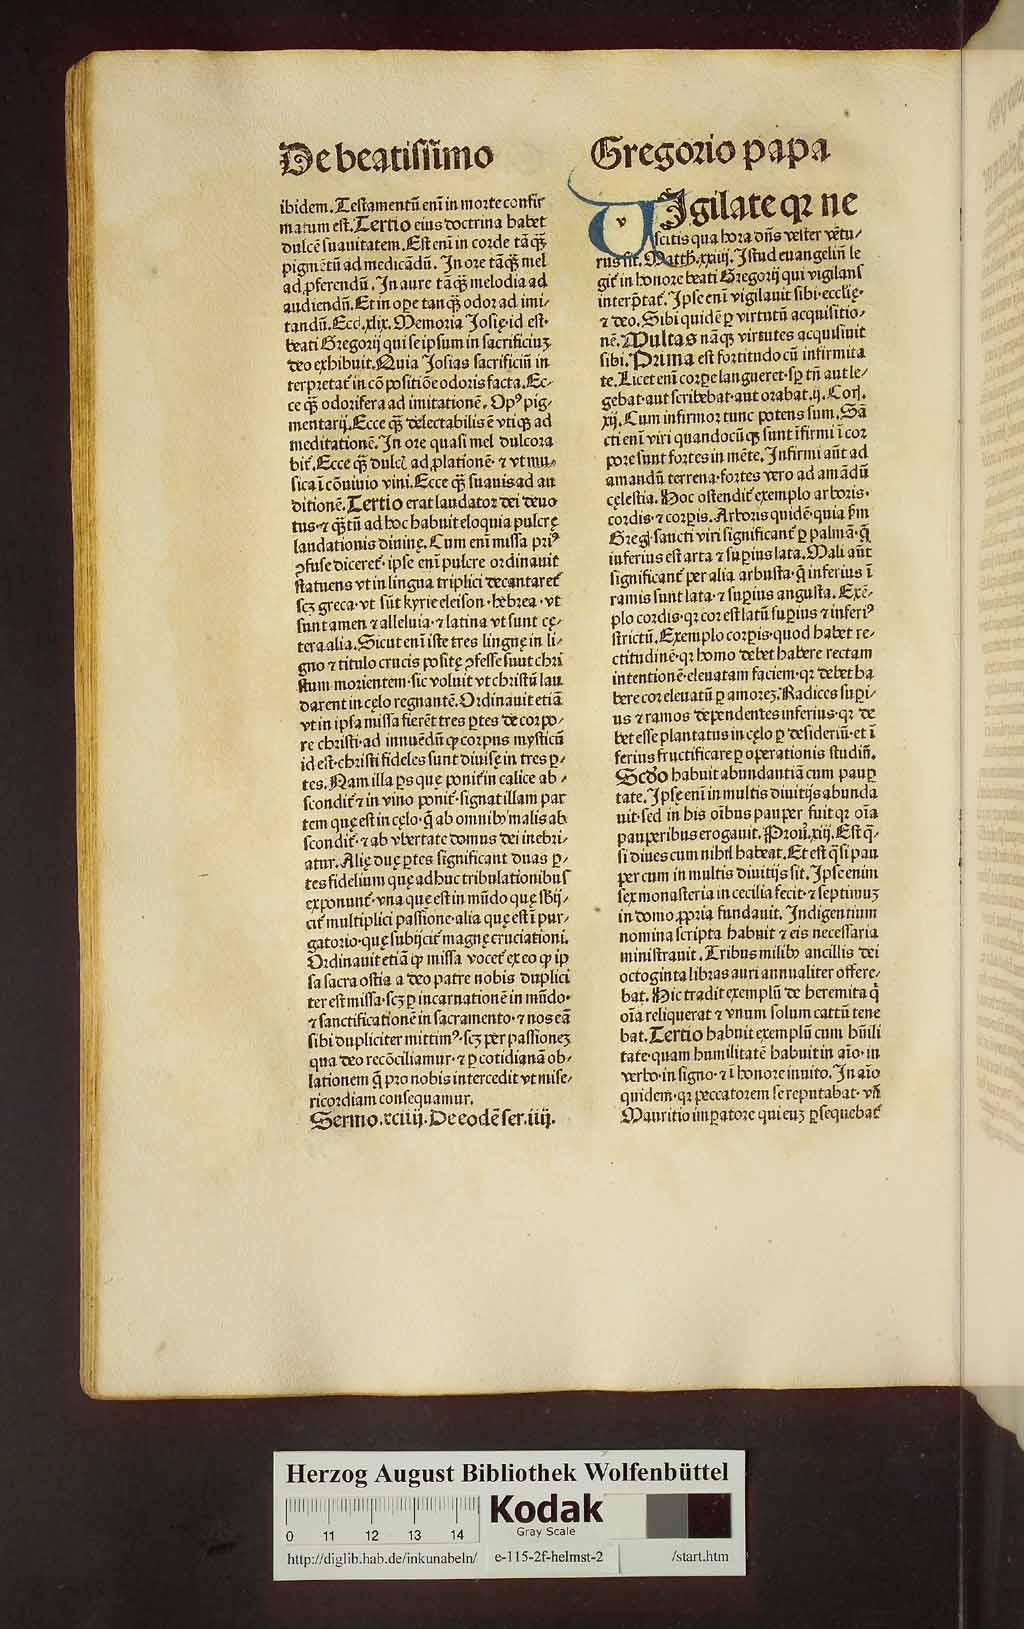 De beatissimo
ibidem. Testamentū enī in morte confir
matum est. Tertio eius doctrina habet
dulcē suauitatem. Est enī in corde tāqȝ
pigmētū ad medicādū. In ore tāqȝ mel
ad ꝓferendū. In aure tāqȝ melodia ad
audiendū. Et in oꝑe tanqȝ odor ad imi-
tandū. Eccl. xlix. Memoria Iosię·id est·
beati Gregorij qui se ipsum in sacrificiuȝ
deo exhibuit. Quia Iosias sacrificiū in
terpretat̄ in cōpositiōe odoris facta. Ec-
ce qȝ odorifera ad imitationē. Opꝰ pig-
mentarij. Ecce qȝ delectabilis ē vtiqȝ ad
meditationē. In ore quasi mel dulcora
bit̄. Ecce qȝ dulcꝭ ad ꝓlationē· ⁊ vt mu-
sica ī cōuiuio vini. Ecce qȝ suauis ad au
ditionē. Tertio erat laudator dei deuo
tus·⁊ qȝtū ad hoc habuit eloquia pulcrę
laudationis diuinę. Cum enī missa priꝰ
ꝯfuse diceret̄· ipse enī pulcre ordinauit
statuens vt in lingua triplici decantaret̄
scȝ greca·vt sūt kyrie eleison·hebrea·vt
sunt amen ⁊ alleluia·⁊ latina vt sunt cę-
tera alia. Sicut enī iste tres lingnę in li-
gno ⁊ titulo crucis positę ꝯfesse sunt chri
stum morientem·sic voluit vt christū lau
darent in cęlo regnantē. Ordinauit etiā
vt in ipsa missa fierēt tres ꝑtes de corpo-
re christi·ad innuēdū ꝙ corpus mysticū
id est·christi fideles sunt diuisę in tres ꝑ-
tes. Nam illa ꝑs que ponit̄ in calice ab-
scondit̄ ⁊ in vino ponit̄·signat illam par
tem quę est in cęlo·q̄ ab omnibꝰ malis ab
scondit̄·⁊ ab vbertate domus dei inebri-
atur. Alię duę ꝑtes significant duas ꝑ-
tes fidelium quę adhuc tribulationibus
exponunt̄·vna que est in mūdo quę sbij-
cit̄ multiplici passione·alia quę est ī pur-
gatorio·quę subijcit̄ magnę cruciationi.
Ordinauit etiā ꝙ missa vocet̄ ex eo ꝙ ip
sa sacra ostia a deo patre nobis duplici
ter est missa·scȝ ꝑ incarnationē in mūdo·
⁊ sanctificationē in sacramento·⁊ nos eā
sibi dupliciter mittimꝰ·scȝ per passionez
qua deo recōciliamur·⁊ ꝑ cotidianā ob-
lationem q̄ pro nobis intercedit vt mise-
ricordiam consequamur.
Sermo. xciiij. De eodē ser. iiij.
Gregorio papa
v
VIgilate qꝛ ne
scitis qua hora dn̄s vester vētu-
rus sit. Matth. xxiiij. Istud euangeliū le
git̄ in honore beati Gregorij qui vigilans
interp̄tat̄. Ipse enī vigilauit sibi·ecclię·
⁊ deo. Sibi quidē ꝑ virtutū acquisitio-
nē. Multas nāqȝ virtutes acquisiuit
sibi. Prima est fortitudo cū infirmita
te. Licet enī corꝑe langueret·sꝑ tn̄ aut le-
gebat·aut scribebat·aut orabat. ij. Corꝭ.
xij. Cum infirmor tunc potens sum. Sā
cti enī viri quandocūqȝ sunt īfirmi ī cor
pore sunt fortes in mēte. Infirmi aūt ad
amandū terrena·fortes vero ad amādū
cęlestia. Hoc ostendit̄ exemplo arboris·
cordis·⁊ corꝑis. Arboris quidē·quia ẜm
Gregꝭ sancti viri significant̄ ꝑ palmā·q̄
inferius est arta ⁊ suꝑius lata. Mali aūt
significant̄ per alia arbusta·q̄ inferius ī
ramis sunt lata·⁊ suꝑius angusta. Exē-
plo cordis·qꝛ cor est latū suꝑius ⁊ inferiꝰ
strictū. Exemplo corꝑis·quod habet re-
ctitudinē·qꝛ homo debet habere rectam
intentionē·eleuatam faciem·qꝛ debet ha
bere cor eleuatū ꝑ amoreȝ. Radices suꝑi-
us ⁊ ramos dependentes inferius·qꝛ de
bet esse plantatus in cęlo ꝑ desideriū·et ī
ferius fructificare ꝑ operationis studiū.
Scďo habuit abundantiā cum pauꝑ
tate. Ipse enī in multis diuitijs abunda
uit·sed in his oībus pauper fuit qꝛ oīa
pauperibus erogauit. Prouꝭ. xiij. Est q̄-
si diues cum nihil habeat. Et est q̄si pau
per cum in multis diuitijs sit. Ipse enim
sex monasteria in cecilia fecit·⁊ septimuȝ
in domo ꝓpria fundauit. Indigentium
nomina scripta habuit ⁊ eis necessaria
ministrauit. Tribus milibꝰ ancillis dei
octoginta libras auri annualiter offere-
bat. Hic tradit exemplū de heremita q̇
oīa reliquerat ⁊ vnum solum cattū tene
bat. Tertio habuit exemplū cum hūili
tate·quam humilitatē habuit in aīo·in
verbo·in signo·⁊ ī honore inuito. In aīo
quidem·qꝛ peccatorem se reputabat·vn̄
Mauritio imꝑatore qui euȝ ꝑsequebat̄
Herzog August Bibliothek Wolfenbüttel
0 11 12 13 14
Kodak
Gray Scale
http://diglib.hab.de/inkunabeln/ e-115-2f-helmst-2 /start.htm